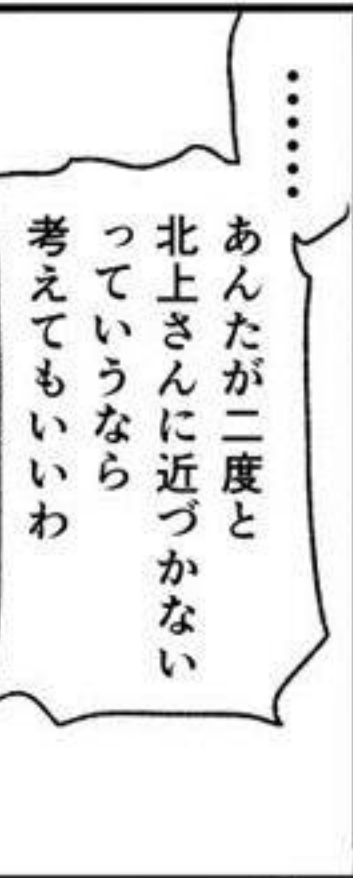 ……
あんたが二度と
北上さんに近づかない
っていうなら
考えてもいいわ